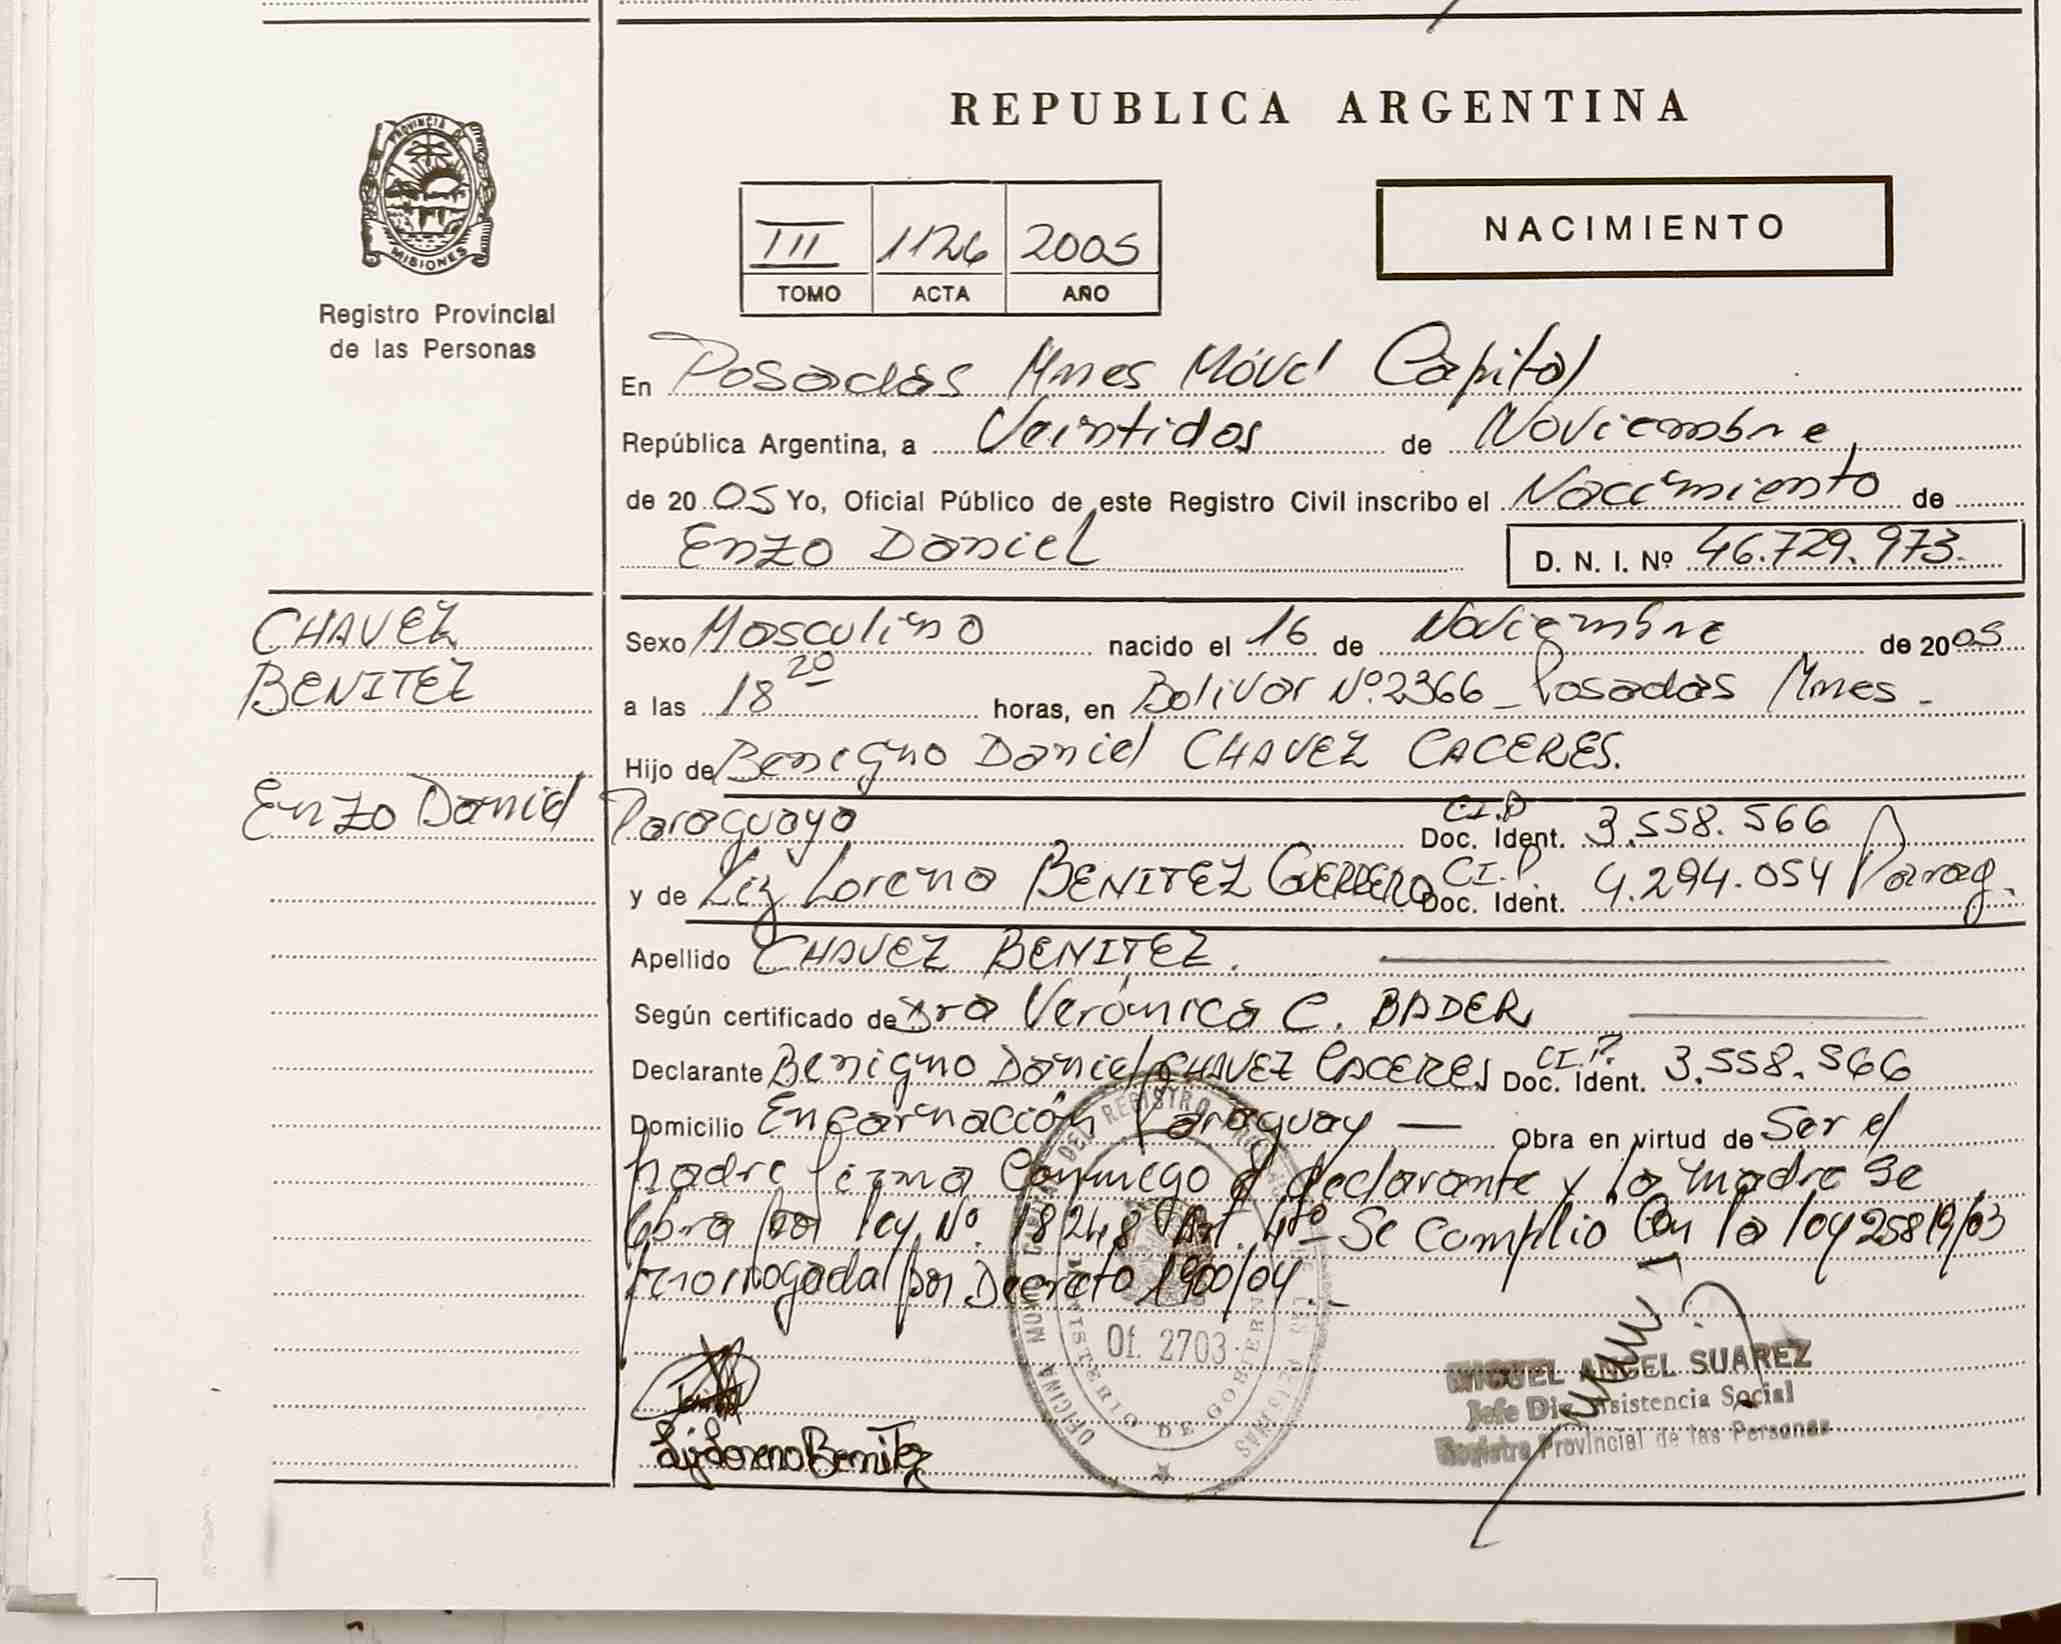 REPUBLICA ARGENTINA
PROVINCIA DE
MISIONES
Registro Provincial
de las Personas
NACIMIENTO
III 1126 2005
TOMO ACTA AÑO
En Posadas Mnes Móvil Capital
República Argentina, a Veintidos de Noviembre
de 2005 Yo, Oficial Público de este Registro Civil inscribo el Nacimiento de
Enzo Daniel D. N. I. Nº 46.729.973.
CHAVEZ
BENITEZ
Enzo Daniel
Sexo Masculino nacido el 16 de Noviembre de 2005
a las 18 20 horas, en Bolivar Nº 2366 - Posadas Mnes -
Hijo de Benigno Daniel CHAVEZ CACERES.
Paraguayo C.I.P Doc. Ident. 3.558.566
y de Liz Lorena BENITEZ GUERRERO C.I.P. Doc. Ident. 4.294.054 Parag.
Apellido CHAVEZ BENITEZ.
Según certificado de Dra Verónica C. BADER
Declarante Benigno Daniel CHAVEZ CACERES C.I.P. Doc. Ident. 3.558.566
Domicilio Encarnación Paraguay — Obra en virtud de Ser el
padre firma conmigo el declarante y la madre se
obra por ley Nº. 18248 Art. 4º - Se complio con la ley 25819/03
Prorrogada por Decreto 1900/04.-
Liz Lorena Benitez
Of. 2703
MINISTERIO DE GOBIERNO
MIGUEL ANGEL SUAREZ
Jefe Div. Asistencia Social
Registro Provincial de las Personas